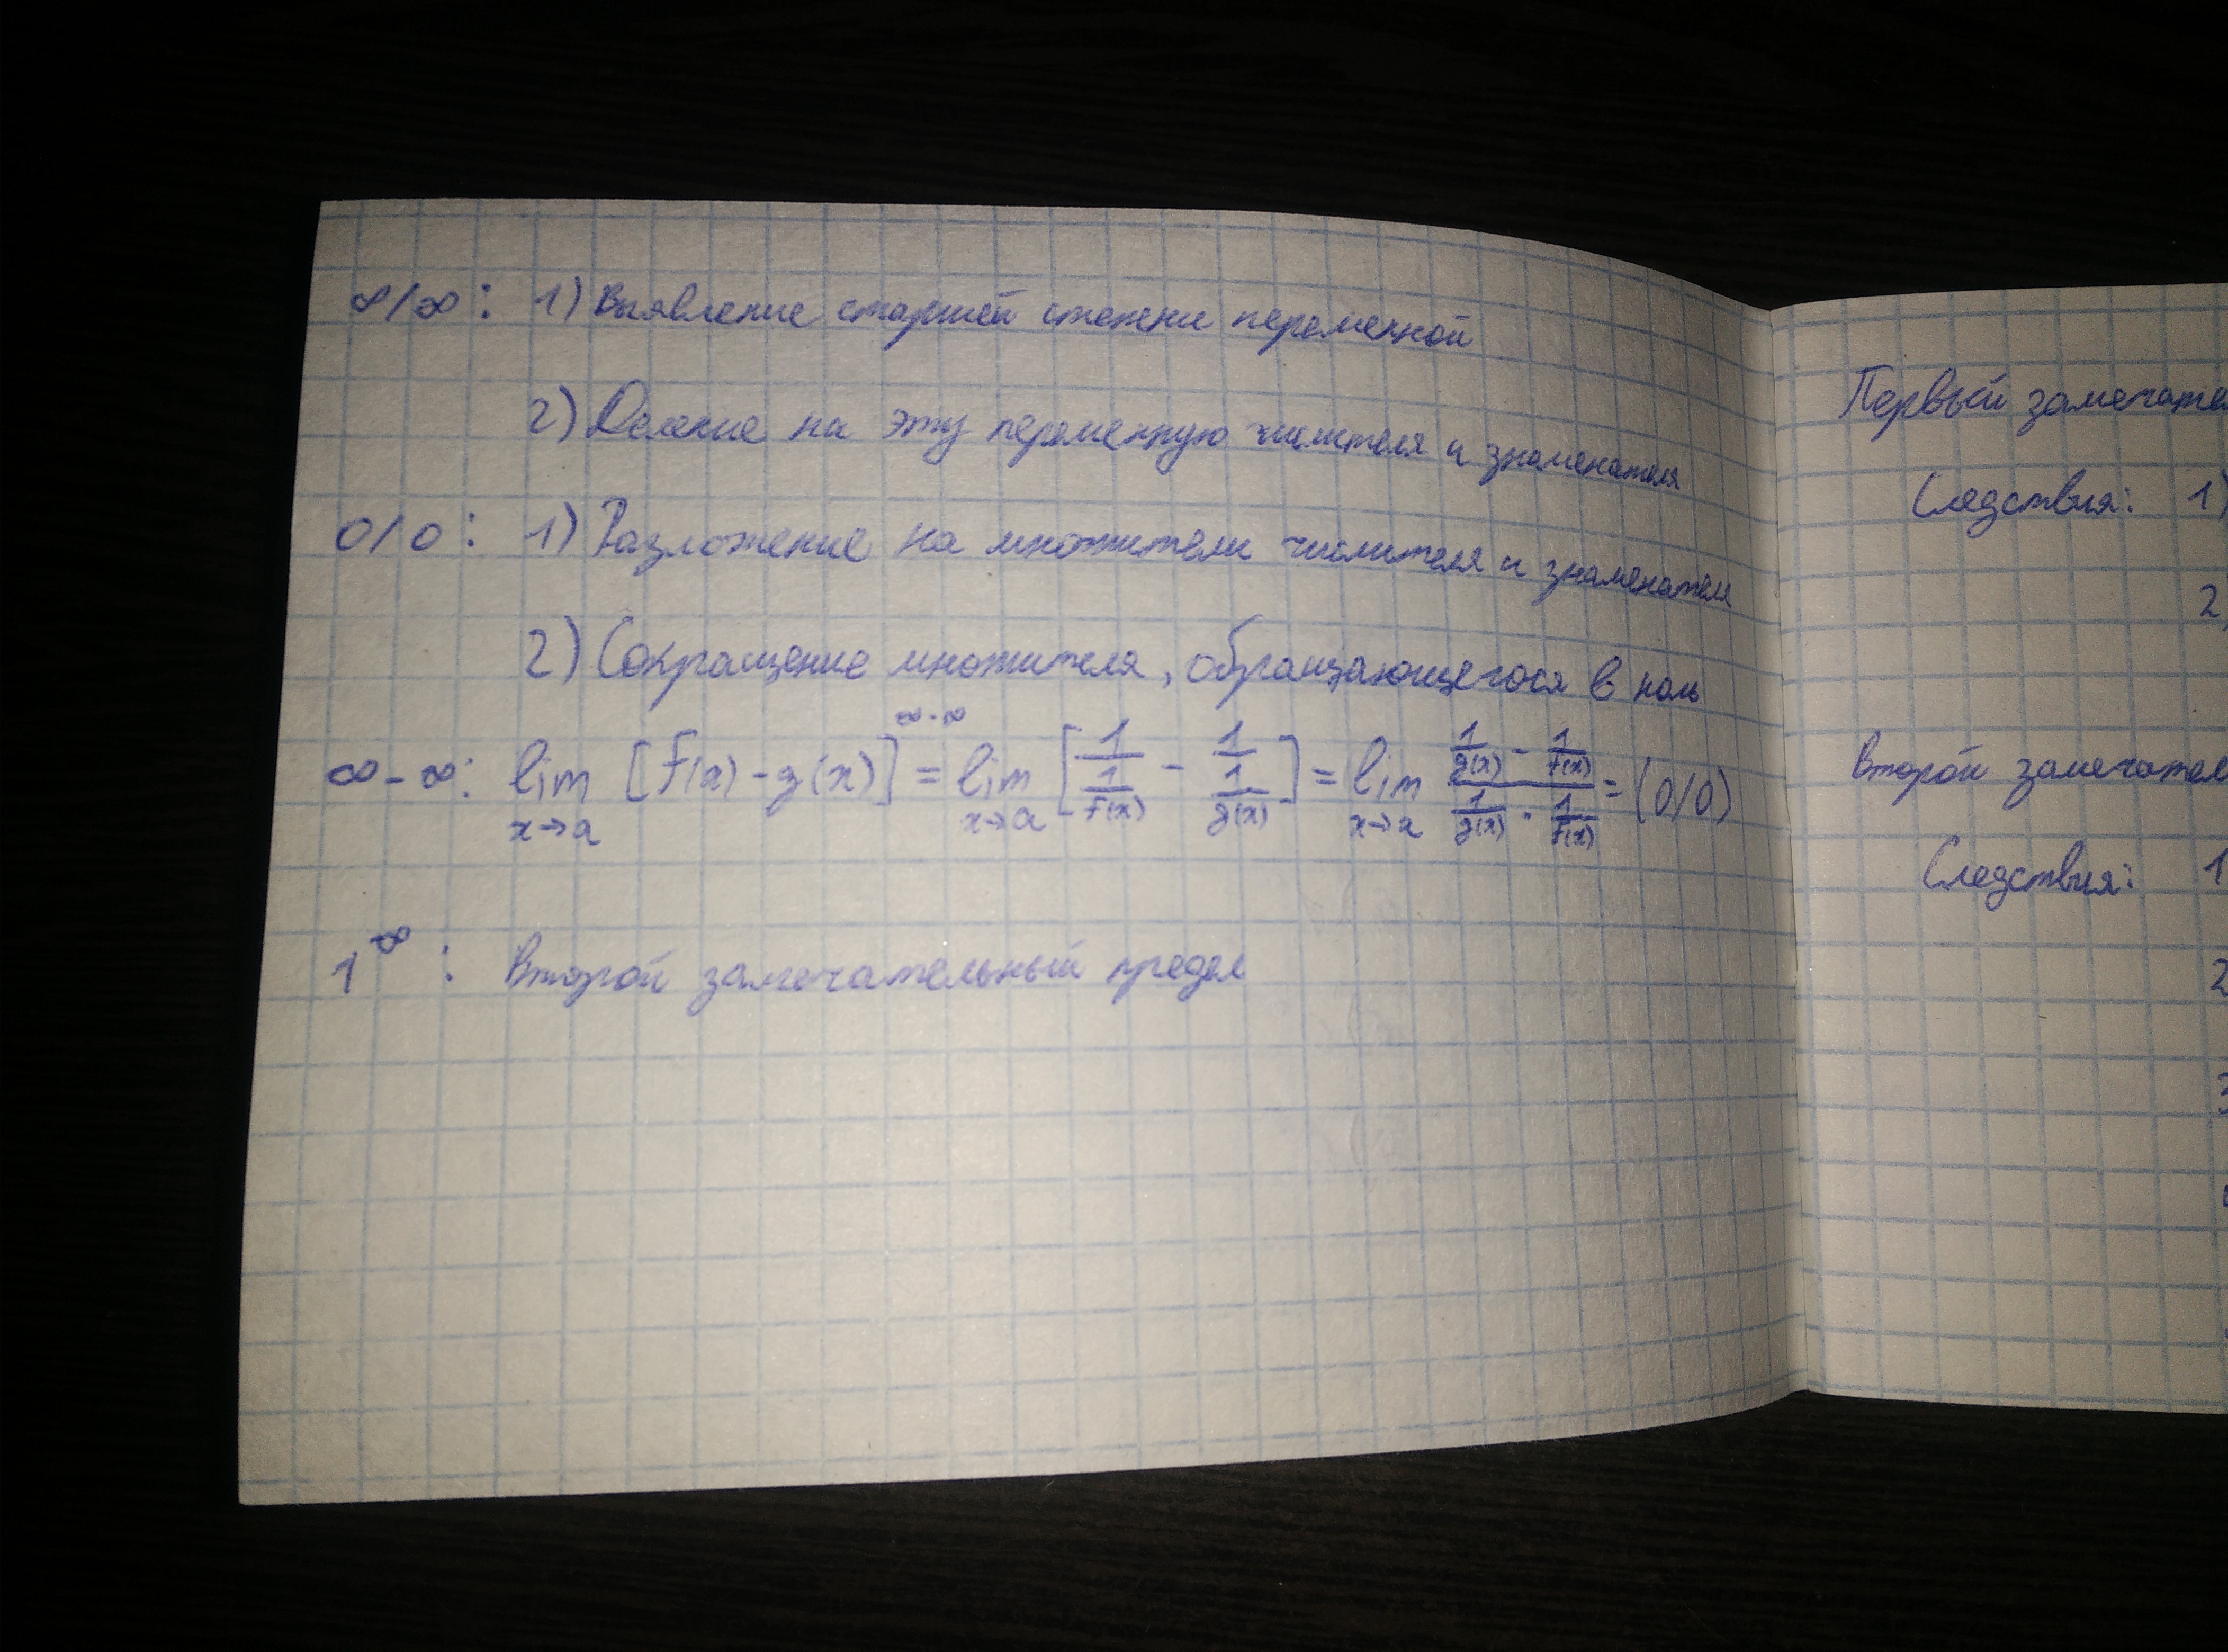 ∞/∞: 1) Выявление старшей степени переменной
2) Деление на эту переменную числителя и знаменателя
0/0: 1) Разложение на множители числителя и знаменателя
2) Сокращение множителя, обращающегося в ноль
∞-∞: lim x→a [f(x)-g(x)]^{∞-∞} = lim x→a [1/(1/f(x)) - 1/(1/g(x))] = lim x→a (1/g(x) - 1/f(x))/(1/g(x) · 1/f(x)) = (0/0)
1^∞: Второй замечательный предел
Первый замечател
Следствия: 1)
2
Второй замечател
Следствия: 1
2
3